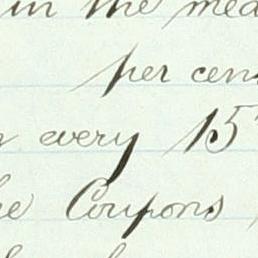 in the mea
per cen
every 15
he Coupons